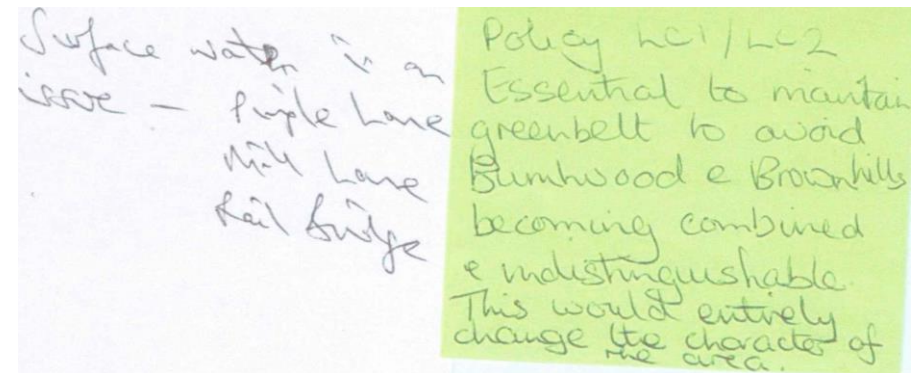 Surface water is an
issue — Pimple Lane
Mill Lane
Rail Bridge
Policy LC1/LC2
Essential to maintain
greenbelt to avoid
Burntwood & Brownhills
becoming combined
& indistinguishable.
This would entirely
change the character of
the area.